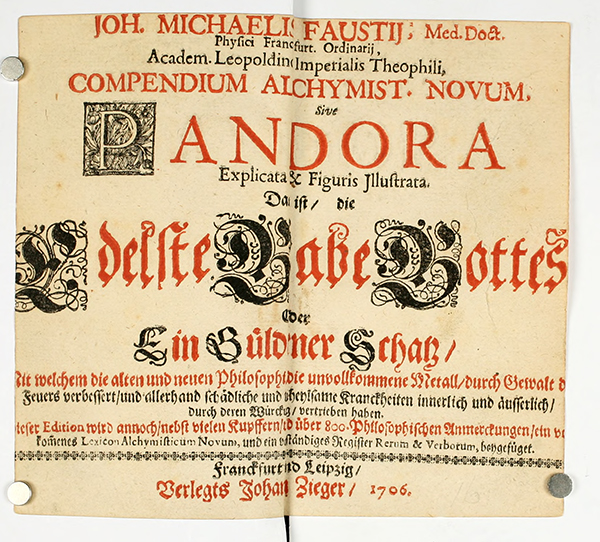 JOH. MICHAELIS FAUSTIJ, Med. Doct.
Physici Francfurt. Ordinarij,
Academ. Leopoldino Imperialis Theophili,
COMPENDIUM ALCHYMIST. NOVUM,
Sive
PANDORA
Explicata & Figuris Jllustrata.
Das ist / die
Edelste Gabe Gottes
Oder
Ein Güldener Schatz /
Mit welchem die alten und neuen Philosophi die unvollkommene Metall / durch Gewalt d
Feuers verbessert / und allerhand schädliche und unheylsame Kranckheiten innerlich und äusserlich /
durch deren Würckung / vertrieben haben.
Dieser Edition wird annoch / nebst vielen Kupffern / und über 800. Philosophischen Anmerckungen / ein vo
komenes Lexicon Alchymisticum Novum, und ein vollständiges Register Rerum & Verborum, beygefüget.
Franckfurt und Leipzig /
Verlegts Johan Zieger / 1706.